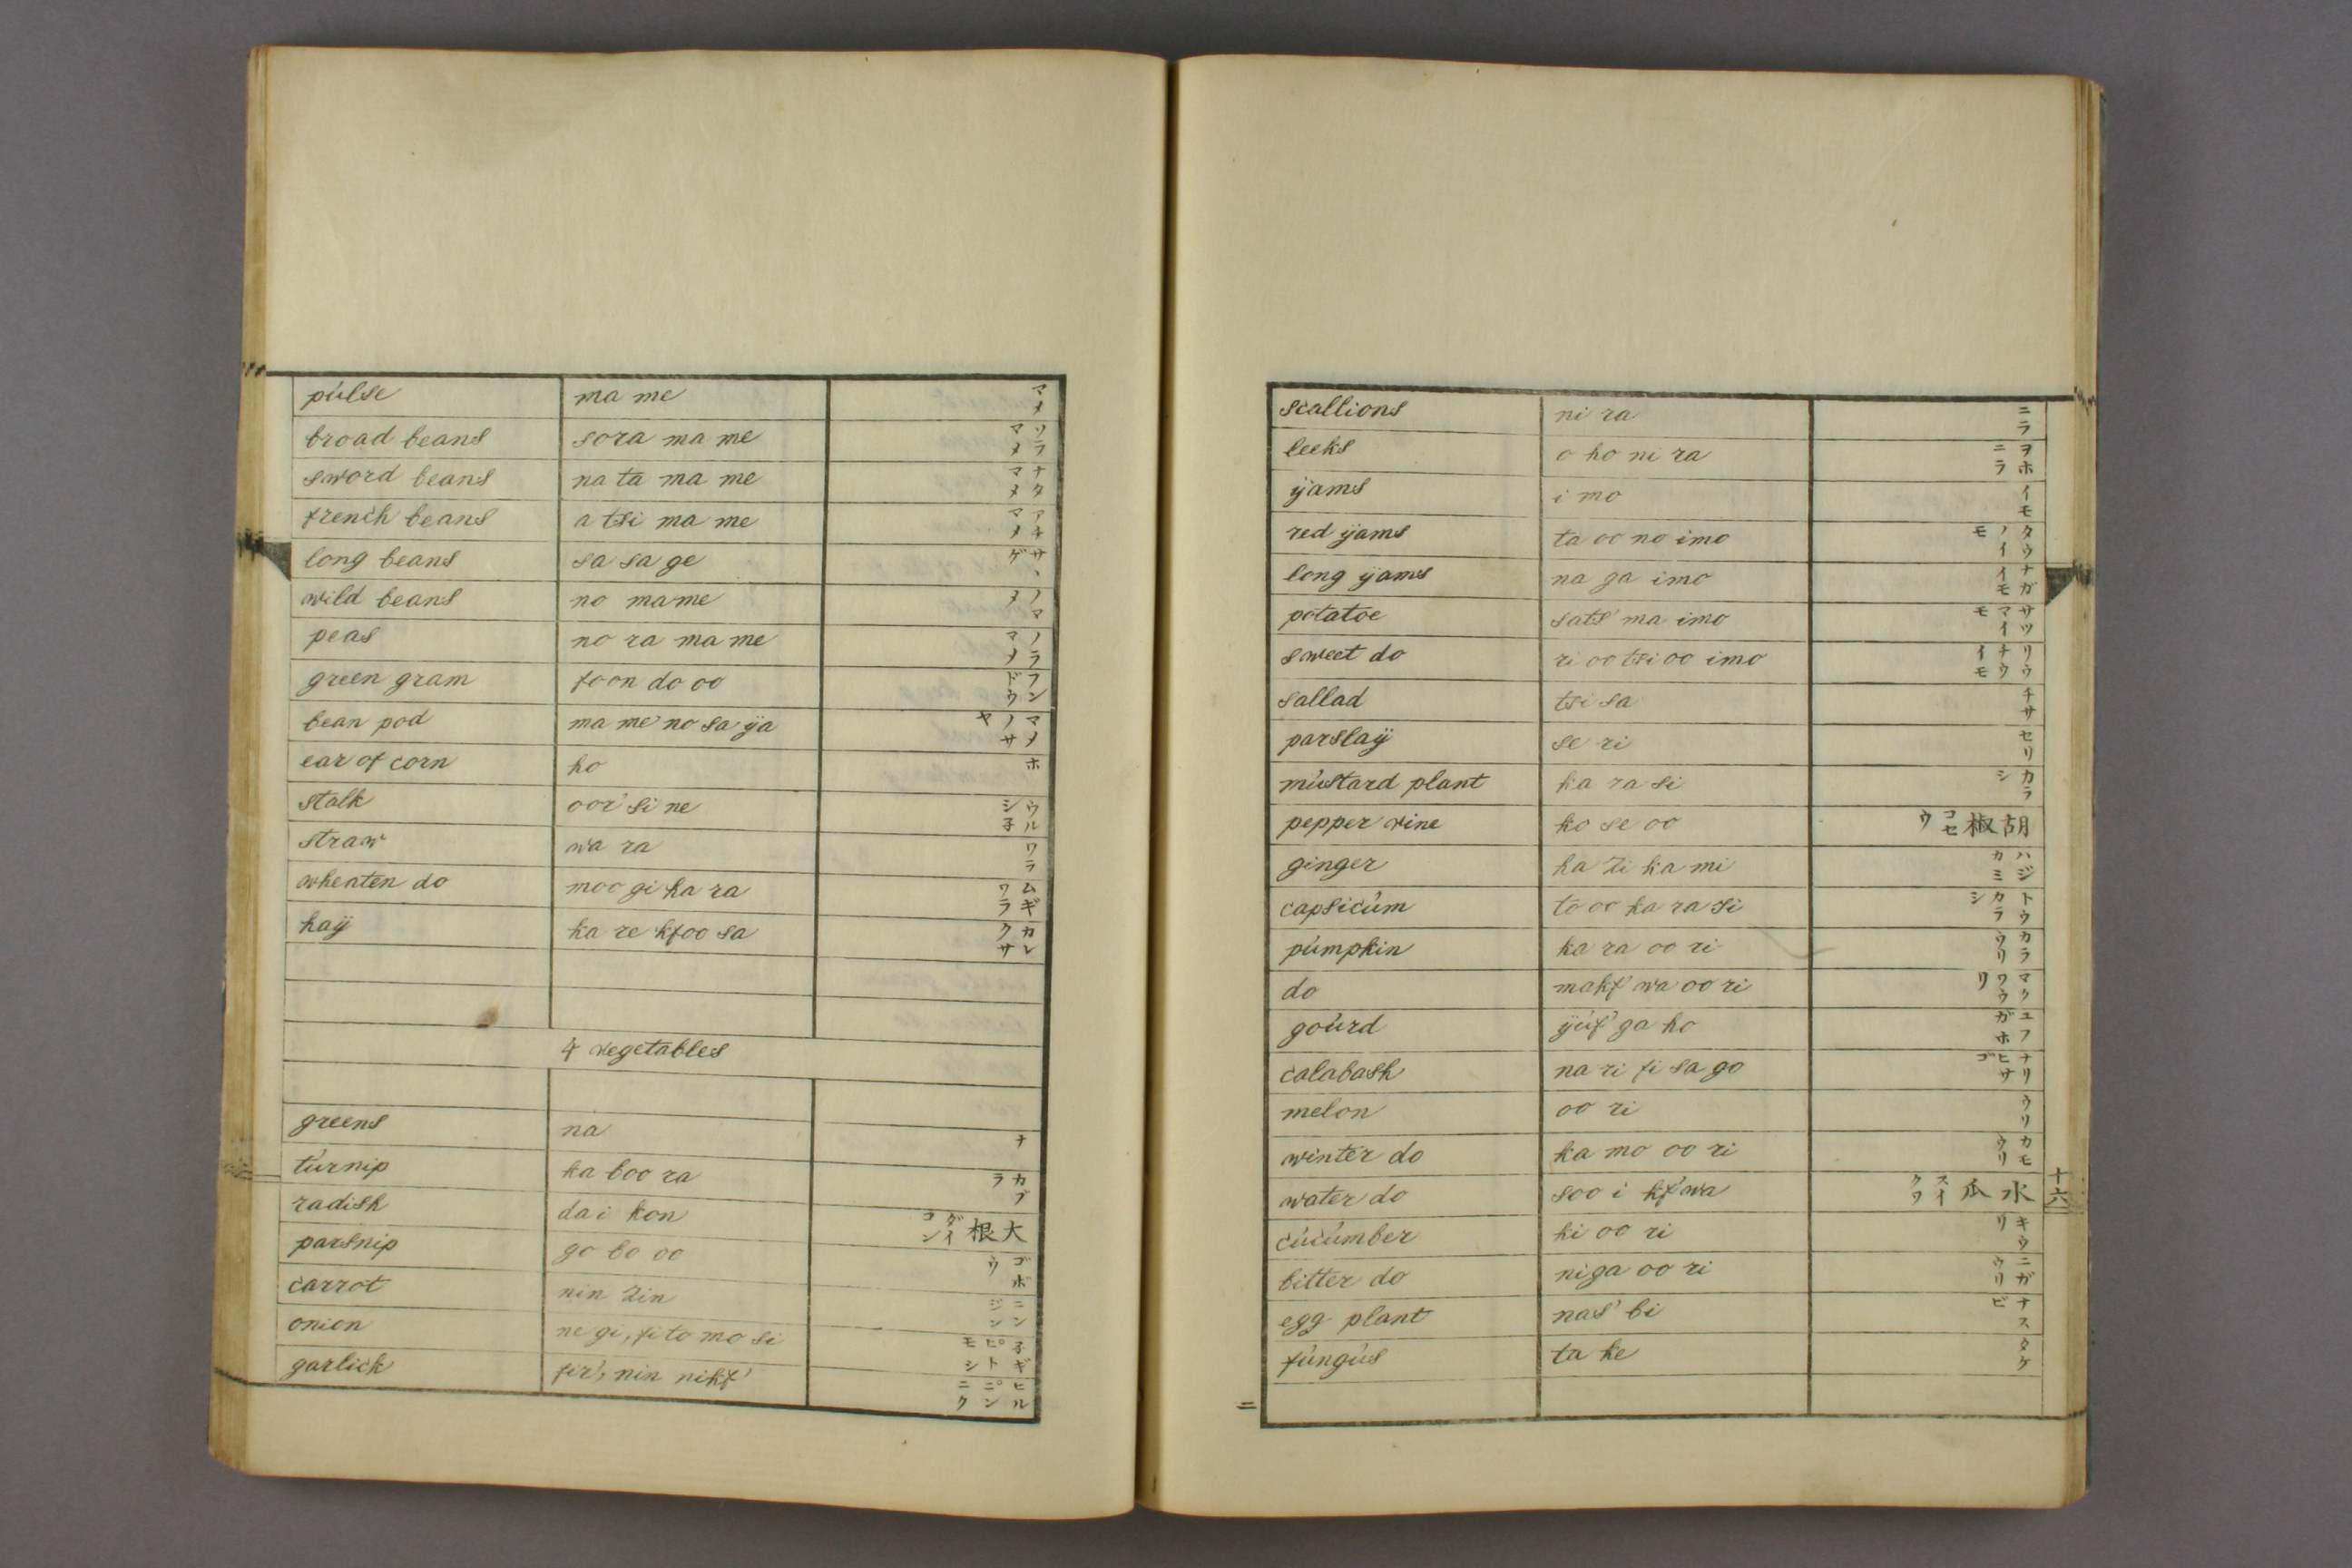 pulse ma me マメ
broad beans sora ma me ソラマメ
sword beans na ta ma me ナタマメ
french beans a tsi ma me アチマメ
long beans sa sa ge サヽゲ
wild beans no mame ノマメ
peas no ra ma me ノラマメ
green gram foon do oo フンドウ
bean pod ma me no sa ÿa マメノサヤ
ear of corn ho ホ
stalk oor' si ne ウルシ子
straw wa ra ワラ
wheaten do moo gi ha ra ムギワラ
haÿ ka re kfoo sa カレクサ
4 vegetables
greens na ナ
turnip ka boo ra カブラ
radish dai kon 大根 ダイコン
parsnip go bo oo ゴボウ
carrot nin zin ニンジン
onion ne gi, fito mo si 子ギ ピトモシ
garlick fir', nin nikf' ヒル ニ゜ンニク
scallions ni ra ニラ
leeks o ho ni ra ヲホニラ
ÿams i mo イモ
red ÿams ta oo no imo タウノイモ
long ÿams na ga imo ナガイモ
potatoe sats' ma imo サツマイモ
sweet do ri oo tsi oo imo リウチウイモ
sallad tsi sa チサ
parslaÿ se ri セリ
mustard plant ka ra si カラシ
pepper vine ko se oo 胡椒 コセウ
ginger ha zi ka mi ハジカミ
capsicum to oo ka ra si トウカラシ
pumpkin ka ra oo ri カラウリ
do makf' wa oo ri マクワウリ
gourd ÿuf' ga ho ユフガホ
calabash na ri fi sa go ナリヒサゴ
melon oo ri ウリ
winter do ka mo oo ri カモウリ
water do soo i kf'wa 水瓜 スイクワ
cucumber ki oo ri キウリ
bitter do niga oo ri ニガウリ
egg plant nas' bi ナスビ
fungus ta ke タケ
十六
二